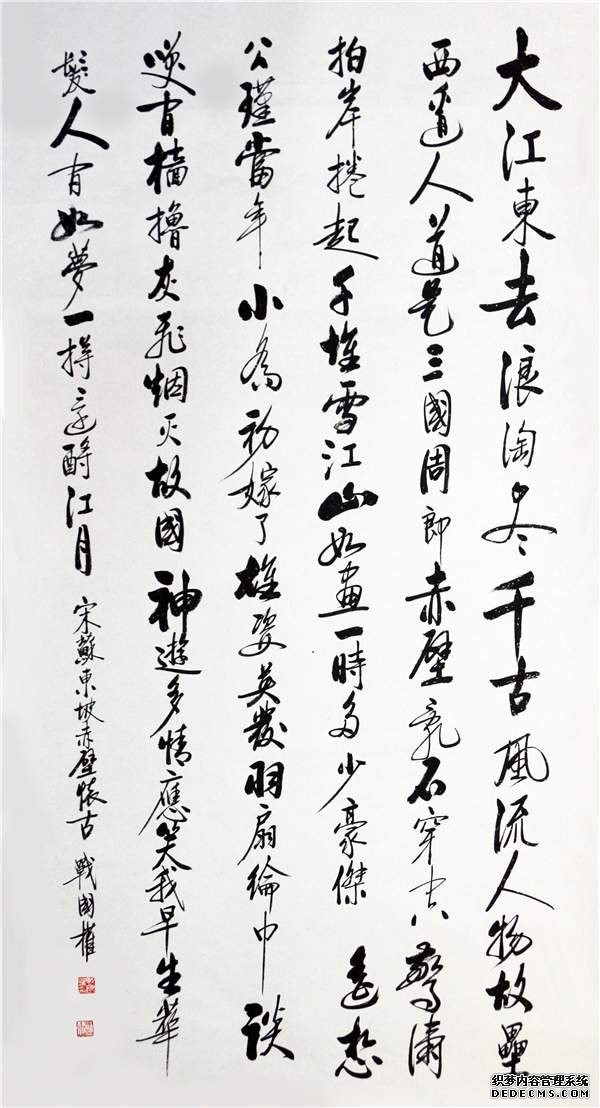 大江東去浪淘尽千古風流人物故壘
西邊人道是三國周郎赤壁亂石穿空驚濤
拍岸捲起千堆雪江山如畫一時多少豪傑遙想
公瑾當年小喬初嫁了雄姿英發羽扇綸巾談
笑間檣櫓灰飛烟灭故國神遊多情應笑我早生華
髮人間如夢一樽還酹江月 宋蘇東坡赤壁懷古 戰國權
织梦内容管理系统
DEDECMS.COM